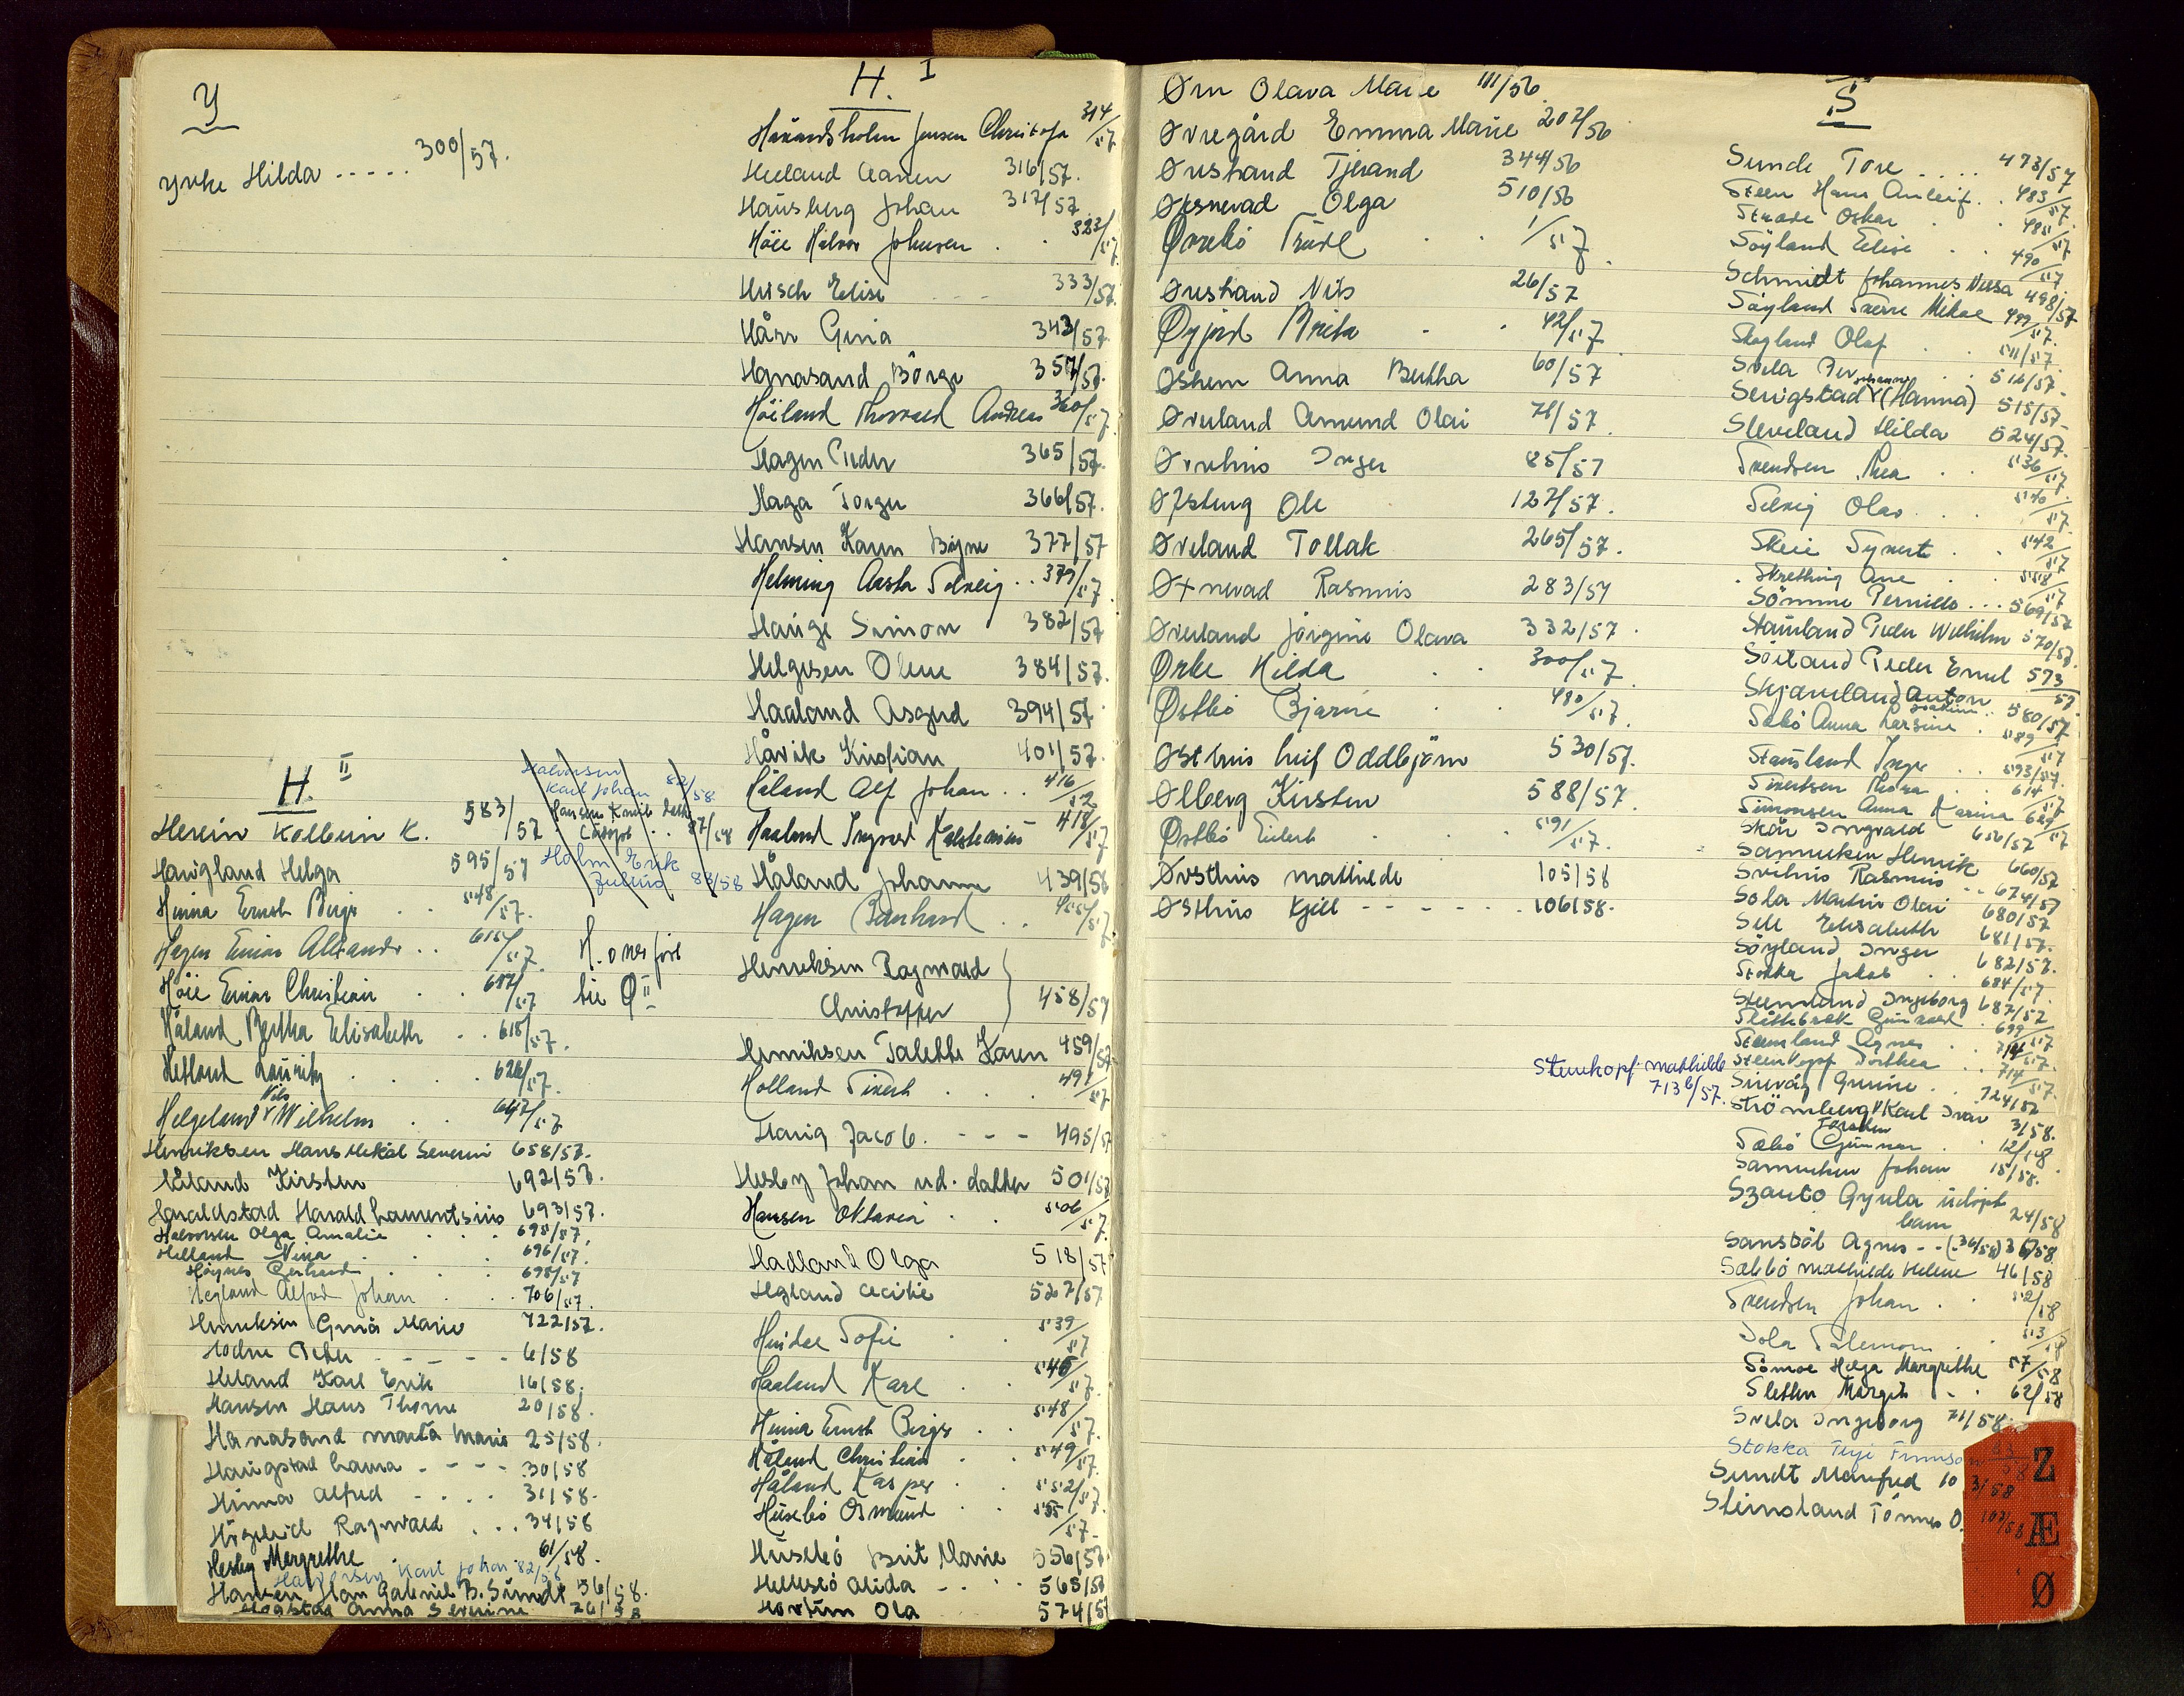 Y
Yrke Hilda ..... 300/57.
H. II
Hervin Kolbein K. 583/57
Haugland Helga 595/57
Hinna Ernst Birger . . 548/57.
Hagen Einar Alexander . . 615/57.
Höie Einar Christian . . 617/57
Håland Bertha Elisabeth . . 618/57.
Hetland Lauritz . . . . 626/57.
Nils
Helgeland v Wilhelm . . 647/57
Henriksen Hans Mikal Severin 658/57.
Håland Kirsten 692/57.
Haraldstad Harald Laurentsius 693/57.
Halvorsen Olga Amalie . . . 695/57.
Helland Nina . . . 696/57.
Høynes Gerhard . . . 698/57
Hegland Alfred Johan . . . 706/57.
Henriksen Gina Marie 722/57.
Hodne Peter - - - - - 6/58
Heland Karl Erik 16/58.
Hansen Hans Thome 20/58.
Hanasand Marta Marie 25/58.
Haugstad Laura - - - - 30/58
Hinna Alfred - . . . 31/58.
Högelid Ragnvald . . . 34/58
Hesby Margrethe . . 61/58.
Halvorsen Karl Johan 82/58
Hansen Stan Gabriel B. Sundt 36/58.
Hogstad Anna Severine 26/58
Halvorsen
Karl Johan 82/58
Hansens Knut Dødf
Ladopt . . 87/58
Holm Erik
Julius 88/58
H. overført
til Ø II
H. I
Havandsholm Jensen Christofa 314/57
Heeland Aanen 316/57.
Hausberg Johan 317/57
Höie Halvor Johnsen . . 323/57.
Hirsch Elise - - - 333/57.
Hårr Gina 343/57
Hanasand Börge 357/57.
Höiland Thorvald Andreas 360/57.
Hagen Peder 365/57.
Haga Torger 366/57.
Hansen Karen Bögne 377/57
Helming Aasta Solveig . . 379/57.
Hauge Simon 382/57
Helgesen Olene 384/57.
Haaland Asgerd 394/57
Håvik Kristian 401/57.
Håland Alf Johan . . 416/57
Haaland Ingvald Kalstenius 418/57
Håland Johanne 439/58
Hagen Bernhard . . 455/57.
Henriksen Ragnvald
Christoffer } 458/57
Henriksen Talette Karen 459/57
Holland Sivert . . . . 491/57
Hauig Jacob. - - - 495/57
Hesby Johan ud. datter 501/57
Hansen Oktavia . . 506/57.
Hadland Olga 518/57
Hegland Cecilie 527/57
Hindal Sofie . . 539/57
Haaland Kare . . 545/57.
Hinna Ernst Birger . . 548/57.
Håland Christian . . 549/57.
Håland Kasper . . 552/57.
Husebö Osmund . . 555/57.
Husebö Brit Marie 556/57
Hellesö Alida - . . . 568/58
Hovtun Ola 574/57
Ørn Olava Marie 111/56
Øvregård Emma Marie 202/56
Ørustrand Tjerand 344/56
Øksnevad Olga 510/56
Øvrebö Trude . . 1/57.
Ørustrand Nils 26/57
Øyjord Brita . . 42/57
Oshem Anna Bertha 60/57
Øverland Amund Olai 71/57.
Ørrehus Inger 85/57
Øfsteng Ole 127/57.
Øveland Tollak 265/57.
Øxnevad Rasmus 283/57
Øverland Jörgine Olava 332/57.
Ørke Hilda . . 300/57
Østbö Bjarne . . 480/57.
Østhus Leif Oddbjörn 530/57.
Ølberg Kirsten 588/57.
Østbö Eilert . . . 591/57.
Øvsthus Mathilde 105/58
Østhus Kjell - - - - - - 106/58.
S
Sunde Tore . . . . 473/57
Steen Hans Anleif . . 483/57.
Strøde Oskar . . 485/57
Söyland Elise . . 490/57
Schmidt Johannes Neesa 498/57
Söyland Sverre Mikal 499/57.
Skogland Olaf . . 511/57.
Svela Per . . 514/57.
Johanne
Serigstad v (Hanna) 515/57.
Sleveland Hilda 524/57.
Svendsen Thea . . 536/57
Selvig Olav . . . 540/57.
Skeie Syvert . . 542/57
Skretting Ane . . 558/57
Sömme Pernille . . . 569/57
Stauland Peder Wilhelm 570/57.
Söiland Peder Emil 573/57
Skjæveland Anton
Joakim . . 580/57
Sæbö Anna Larsine . 589/57
Stausland Inger . . 593/57.
Sivertsen Thora . . 614/57
Simonsen Anna Karina 629/57
Skår Ingvald 656/57
Samuelsen Henrik 660/57
Svihus Rasmus -- 674/57
Sola Martin Olai 680/57
Sele Elisabeth 681/57.
Söyland Inger 682/57.
Stokka Jakob . . 684/57.
Steinsland Ingeborg 687/57
Slettebrek Gunvald . 699/57
Stemland Agnes . . 714/57.
Steinkopf Dorthea . . 714/57.
Steinkopf Mathilde
713b/57.
Sirevåg Gurine . 724/57
Strömberg v Karl Ivar
Torsten 3/58.
Sæbö Gunnar . 12/58
Samuelsen Johan 15/58.
Szanto Gyula udöpt
barn 24/58
Sanstöl Agnes - - (36/58) 37/58.
Sæbö Mathilde Helene 46/58
Svendsen Johan . . 52/58
Sola Salemon . . 53/58
Sömoe Helga Margrethe 57/58
Sletten Margit - . 62/58
Svela Ingeborg 71/58.
Stokka Terje Finnson 83/58
Sundt Manfred 103/58
Steinsland Tönnes O. 107/58
Z
Æ
Ø